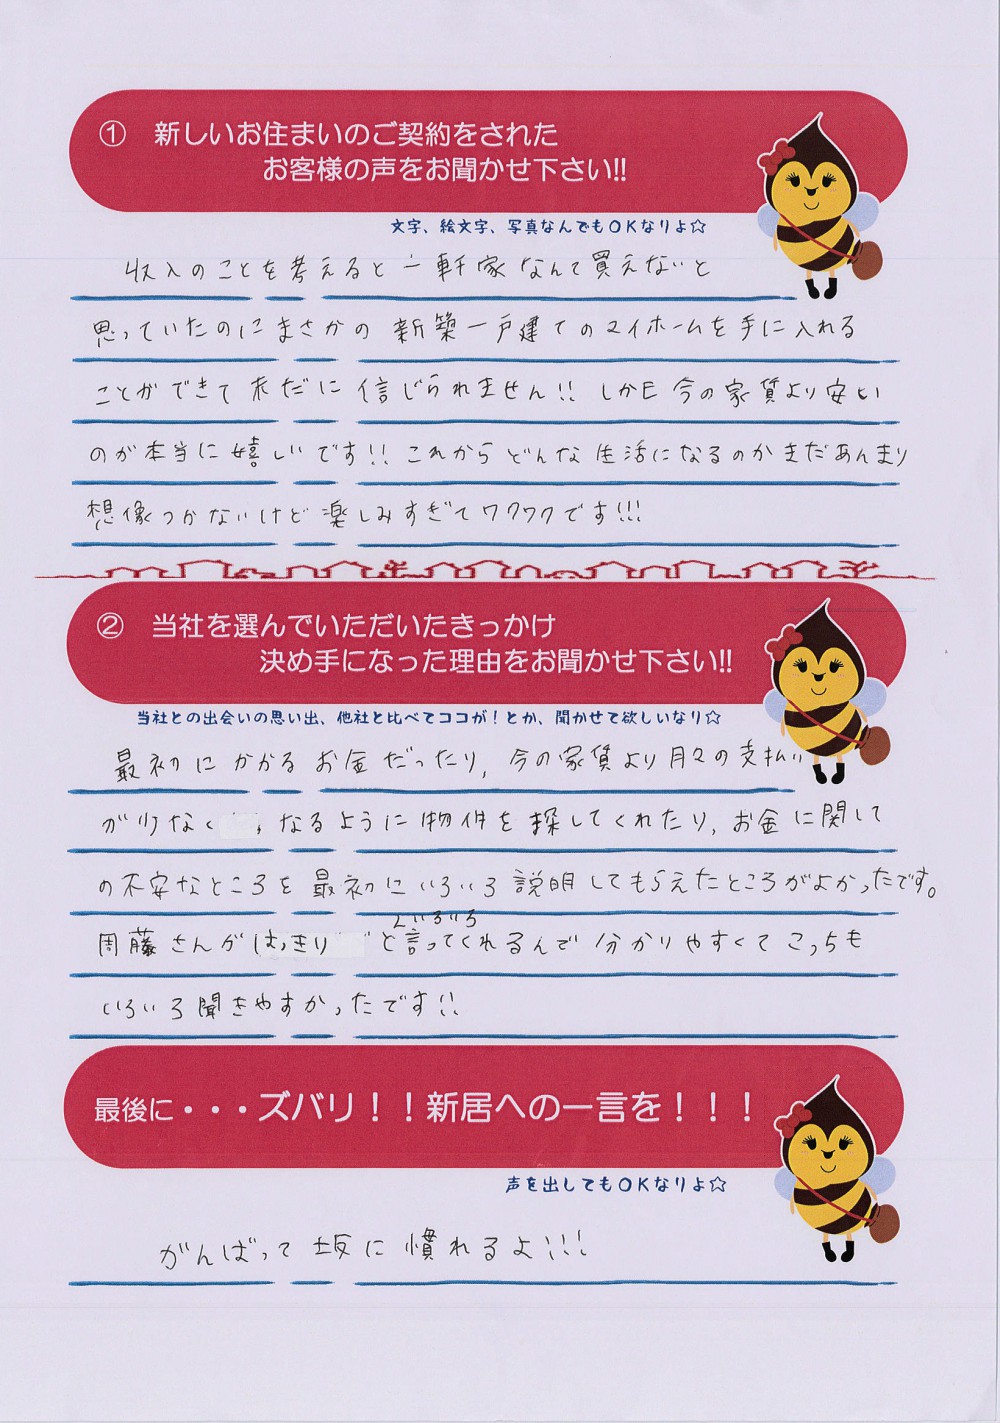 ① 新しいお住まいのご契約をされた
お客様の声をお聞かせ下さい!!
文字、絵文字、写真なんでもOKなりよ☆
収入のことを考えると一軒家なんて買えないと
思っていたのにまさかの新築一戸建てのマイホームを手に入れる
ことができて未だに信じられません!! しかも今の家賃より安い
のが本当に嬉しいです!! これからどんな生活になるのかまだあんまり
想像つかないけど楽しみすぎてワクワクです!!!
② 当社を選んでいただいたきっかけ
決め手になった理由をお聞かせ下さい!!
当社との出会いの思い出、他社と比べてココが！とか、聞かせて欲しいなり☆
最初にかかるお金だったり, 今の家賃より月々の支払い
が少なく なるように物件を探してくれたり, お金に関して
の不安なところを最初にいろいろ説明してもらえたところがよかったです。
いろいろ
周藤さんがはっきり と言ってくれるんで分かりやすくてこっちも
いろいろ聞きやすかったです!!
最後に・・・ズバリ！！新居への一言を！！！
声を出してもOKなりよ☆
がんばって坂に慣れるよ!!!